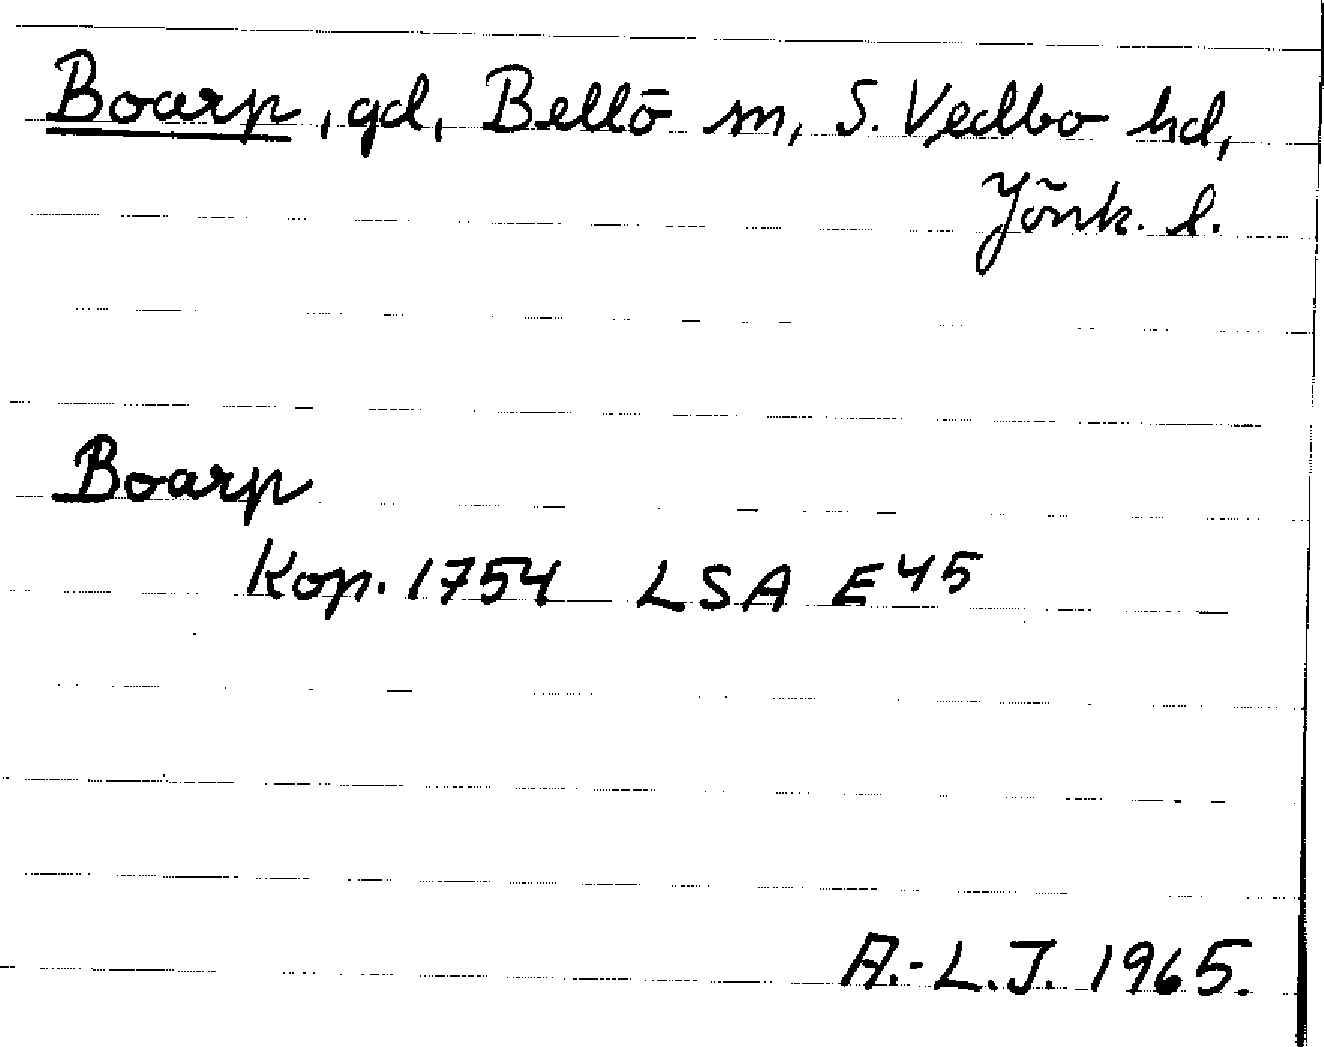 Boarp, gd, Bellö sn, S. Vedbo hd,
Jönk. l.
Boarp
Kop. 1754 LSA E45
A.-L.J. 1965.